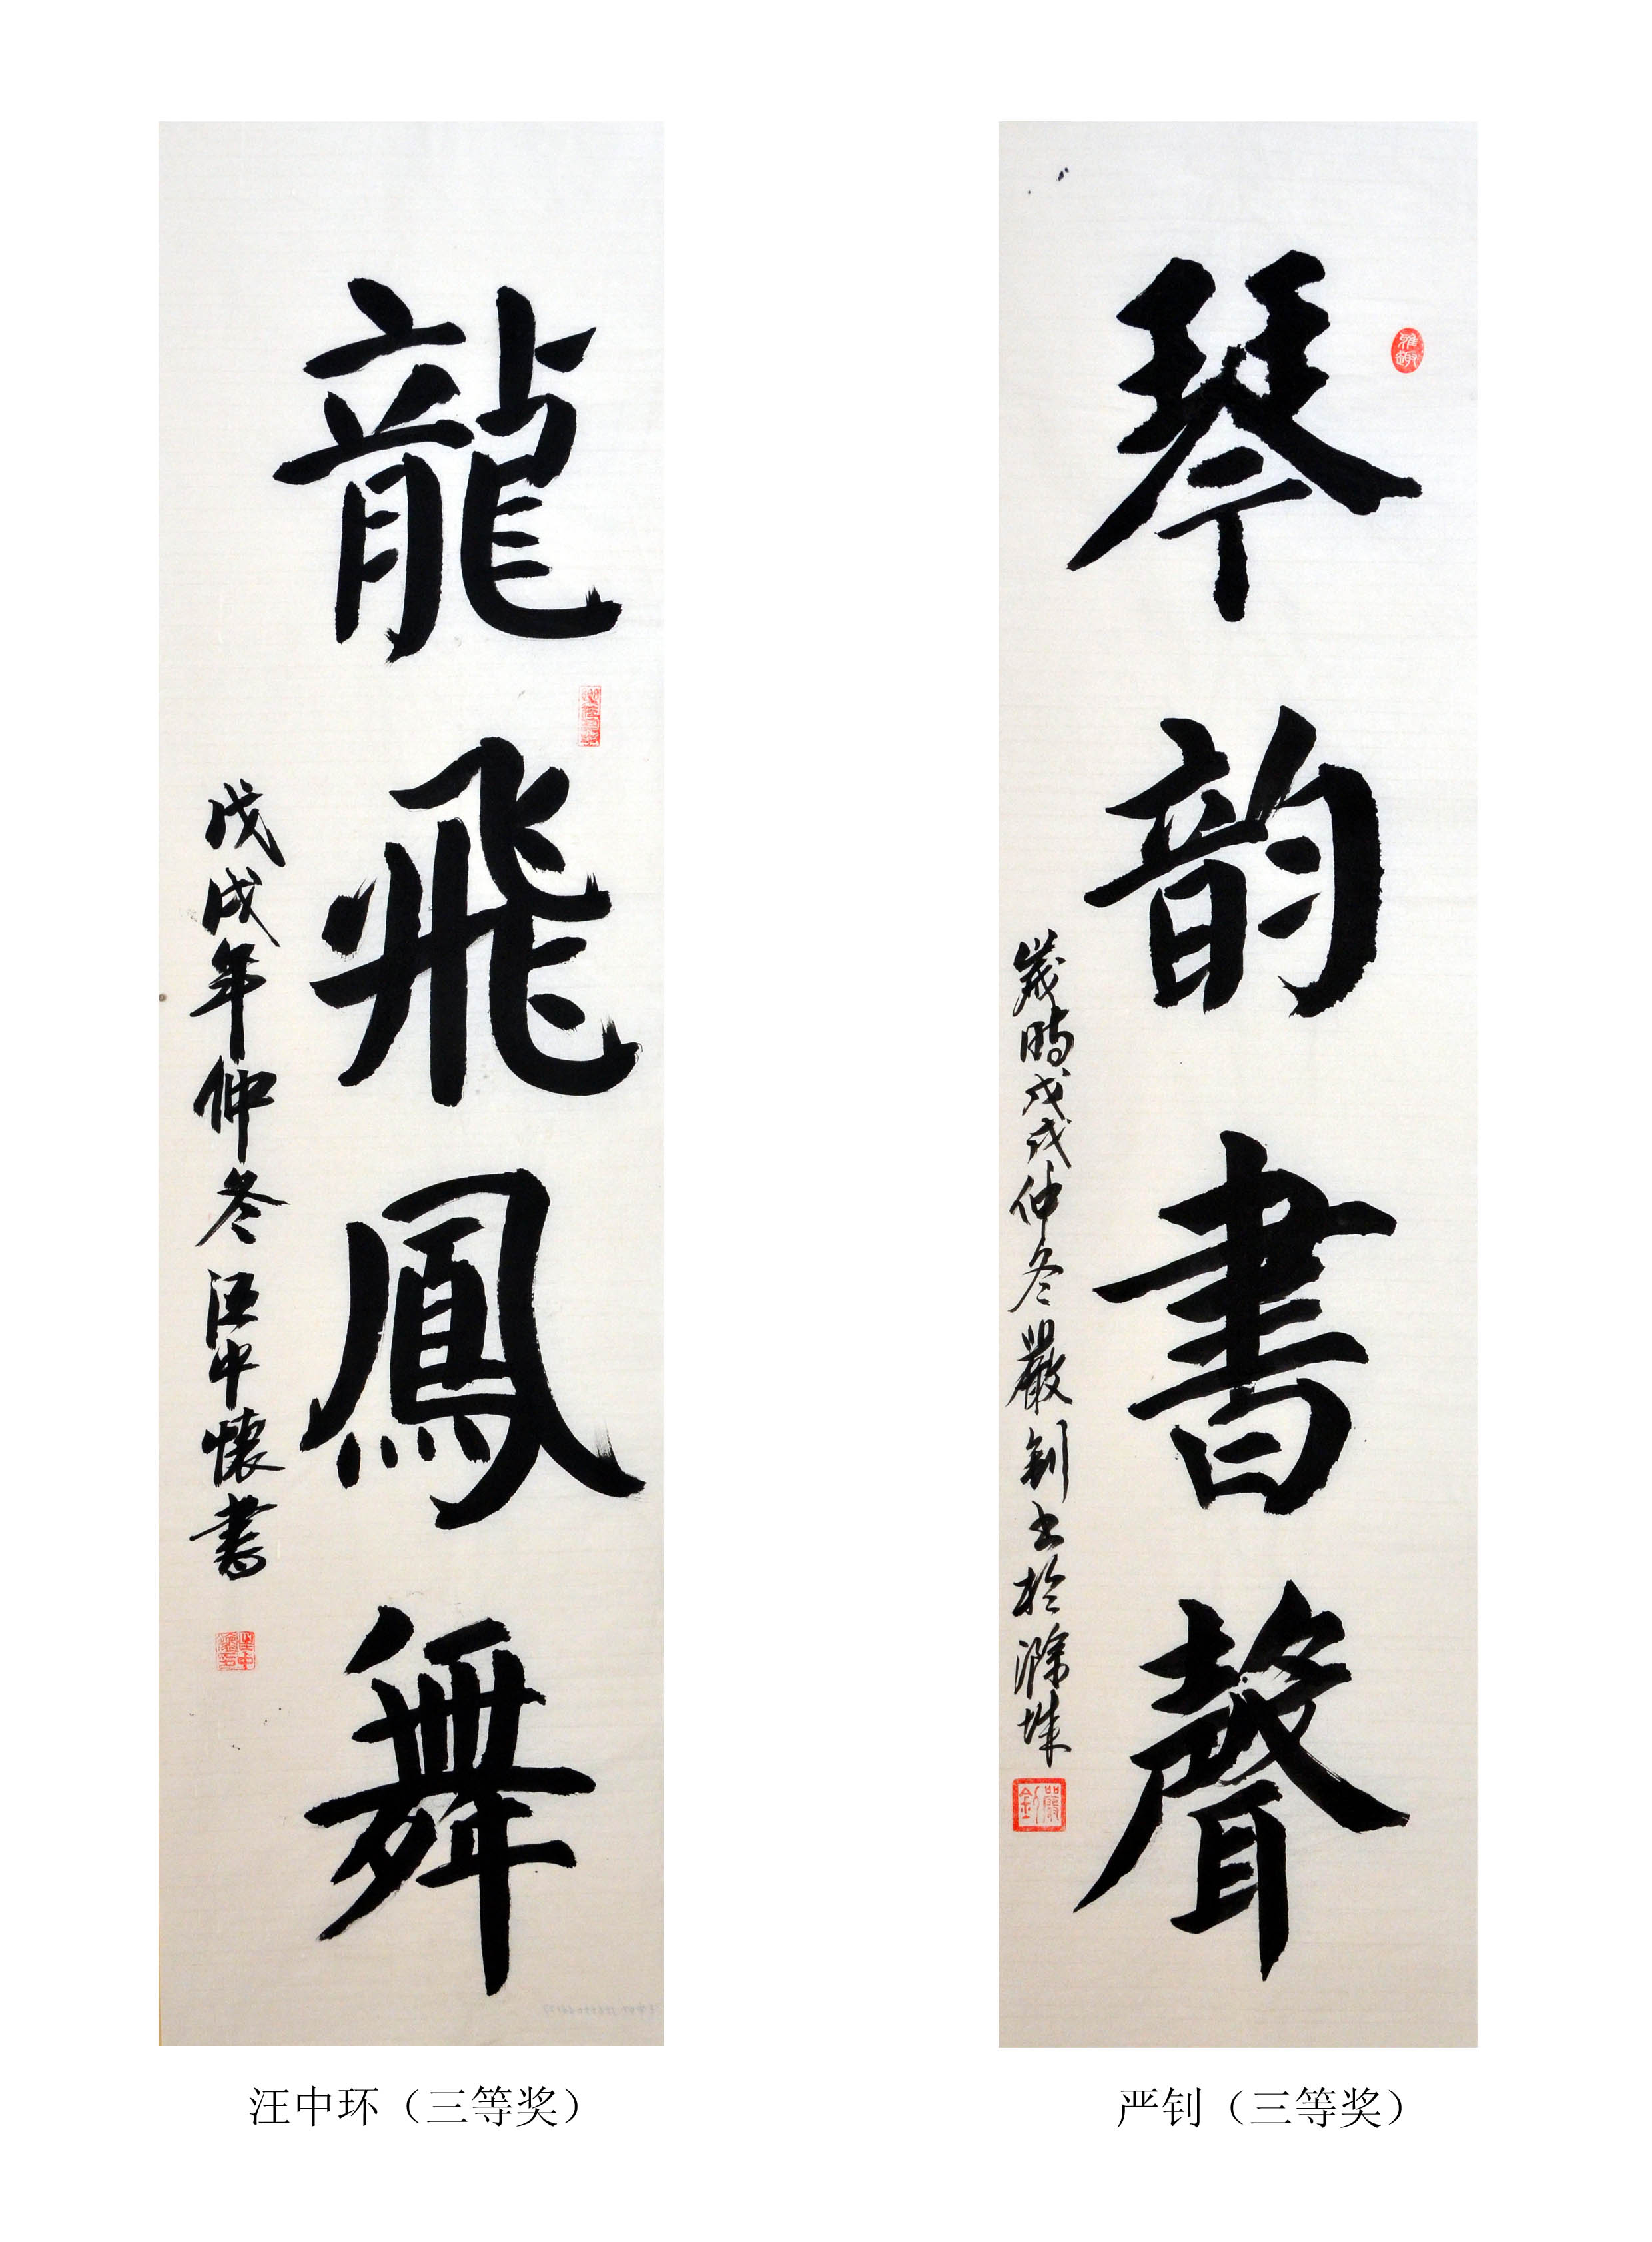 龍飛鳳舞
戊戌年仲冬汪中懷書
琴韵書聲
歲時戊戌仲冬嚴釗书於滁城
雅趣
嚴釗
汪中环（三等奖）
严钊（三等奖）